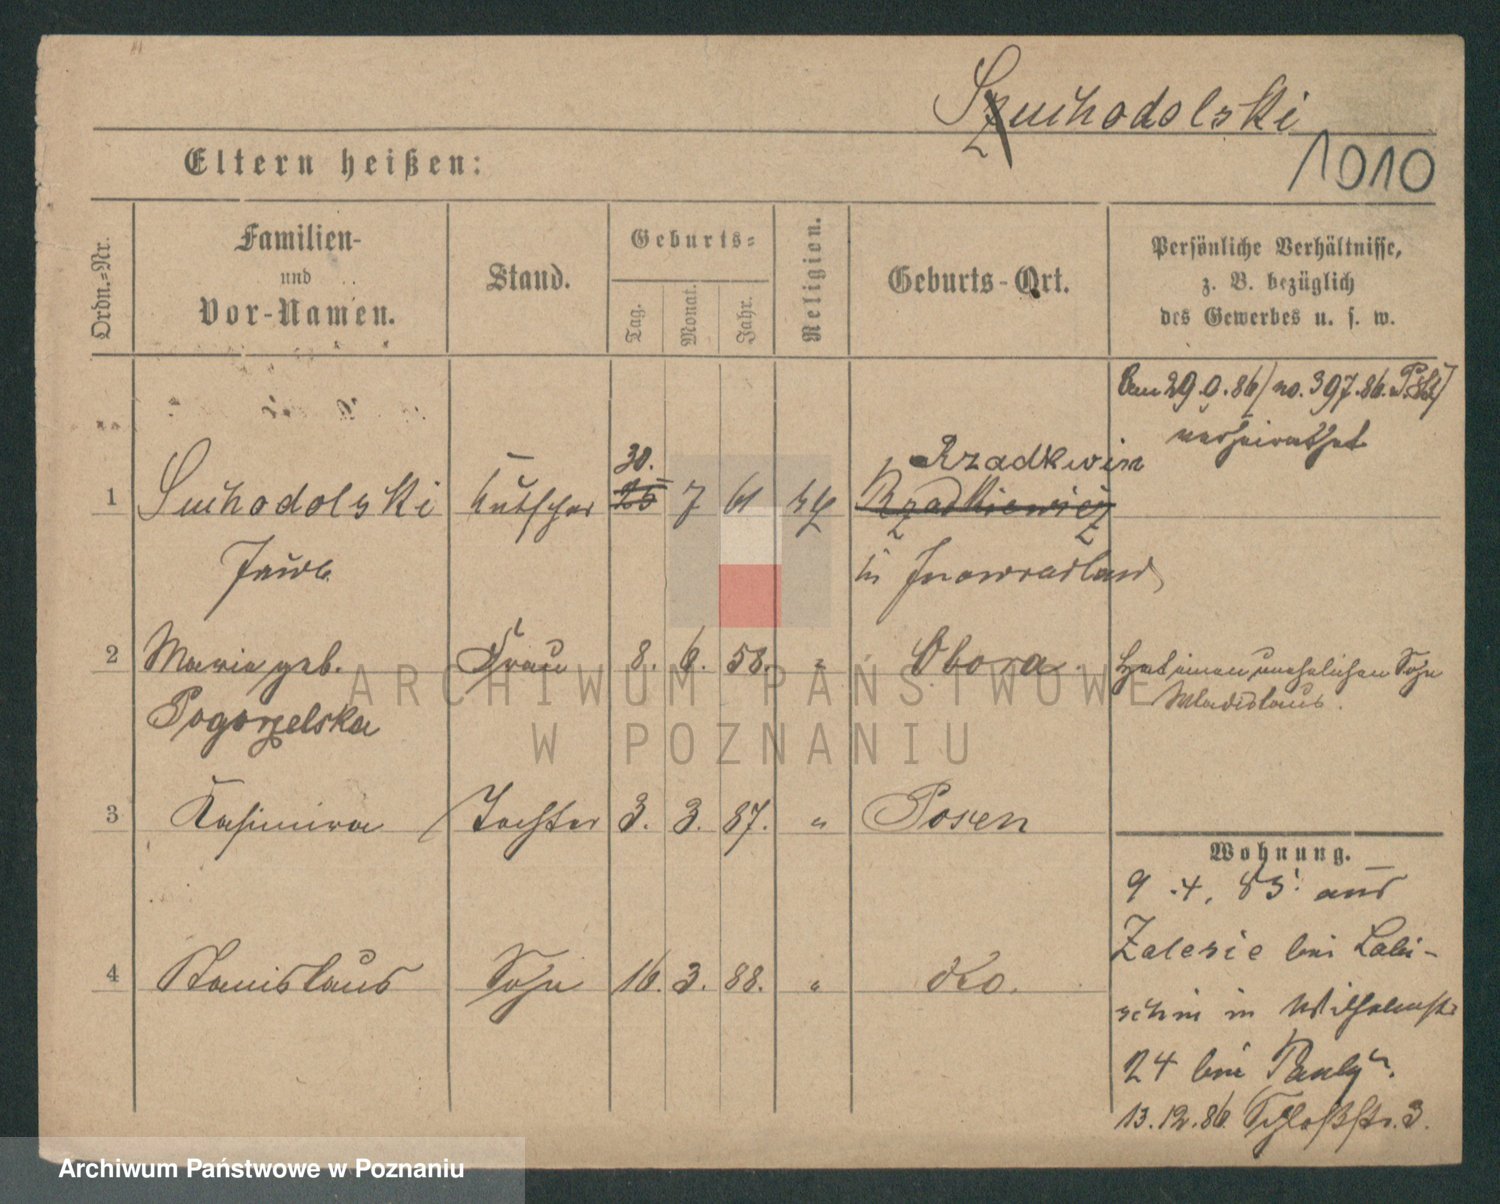 Suchodolski
1010
Eltern heißen:
Ordn.-Nr.
Familien-
und
Vor-Namen.
Stand.
Geburts-
Tag.
Monat.
Jahr.
Religion.
Geburts-Ort.
Persönliche Verhältnisse,
z. B. bezüglich
des Gewerbes u. s. w.
29 86 no. 397.86.
verheirathet
30. Rzadkwin
1 Suchodolski Kutscher 25 7 61 Rzadkiewicz
in Inowradlaw
2 Maria geb. Frau 8. 6. 58. " Obora Hat einen unehelichen Sohn
Pogorzelska Wladislaus.
3 Kasimira Tochter 3. 3. 87. " Posen
Wohnung.
9.4.83. aus
Zalesie bei Labi-
4 Stanislaus Sohn 16. 3. 88. " dto.
schin in Wilhelmstr
24 bei Pauly.
13.12.86. Schloßstr. 3.
ARCHIWUM PAŃSTWOWE
W POZNANIU
Archiwum Państwowe w Poznaniu